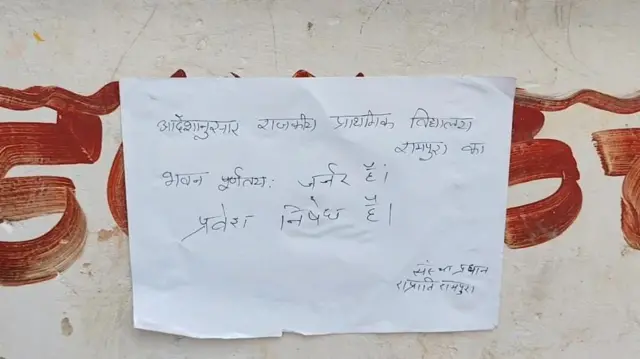 आदेशानुसार राजकीय प्राथमिक विद्यालय
रामपुरा का
भवन पूर्णतयः जर्जर है।
प्रवेश निषेध है।
संस्था प्रधान
राप्रावि रामपुरा